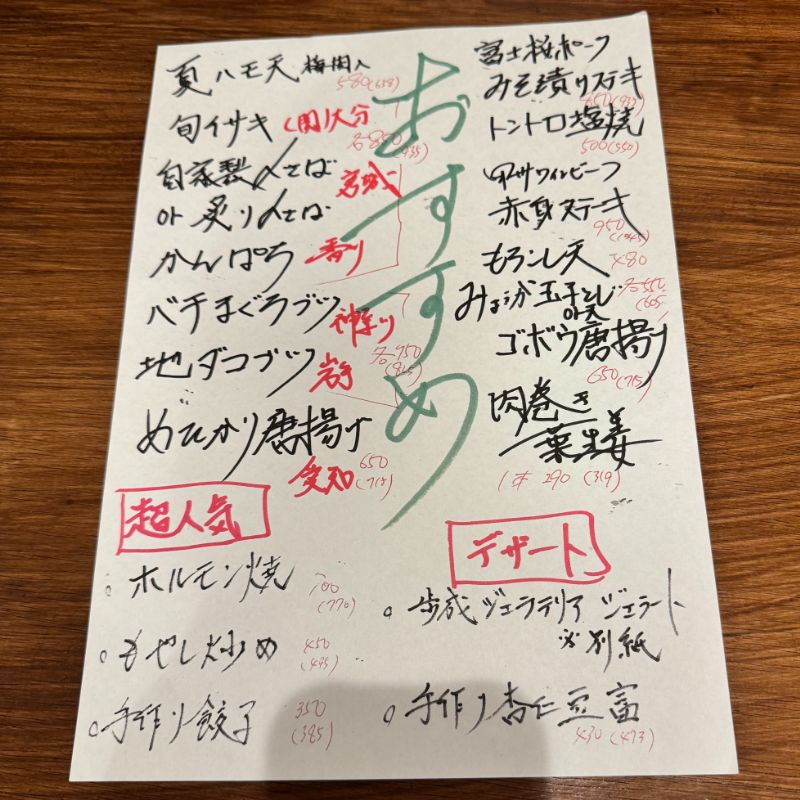 おすすめ
夏ハモ天 梅肉入
580(638)
旬イサキ 大分
各850(935)
自家製〆さば 宮城
or 炙り〆さば
かんぱち 香川
バチまぐろブツ 神奈川
地ダコブツ 岩手
めひかり唐揚げ
愛知 650(715)
超人気
ホルモン焼 700(770)
もやし炒め 450(495)
手作り餃子 350(385)
富士桜ポーク
みそ漬けステキ
トントロ塩焼
500(550)
甲州ワインビーフ
赤身ステーキ
950(1045)
もろこし天 480
みょうが玉子とじ
or天
各550(605)
ゴボウ唐揚げ
650(715)
肉巻き
葉生姜
1本 290(319)
デザート
ジェラテリア ジェラート
※別紙
手作り杏仁豆富
430(473)